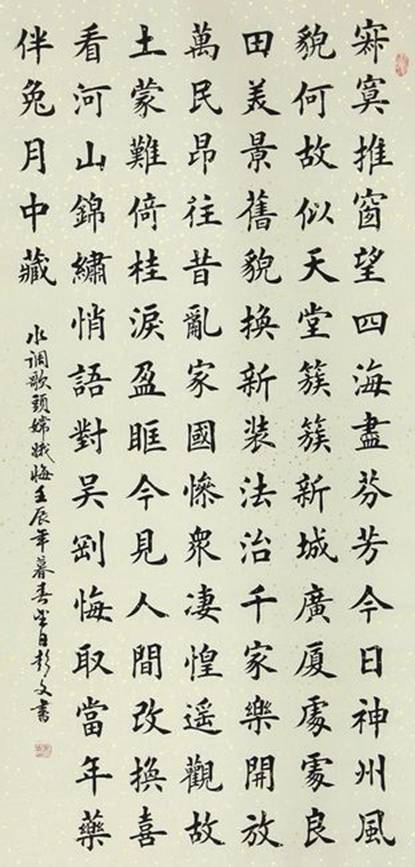 寂寞推窗望四海盡芬芳今日神州風
貌何故似天堂簇簇新城廣厦處處良
田美景舊貌換新裝法治千家樂開放
萬民昂往昔亂家國慘衆凄惶遥觀故
土蒙難倚桂淚盈眶今見人間改換喜
看河山錦繡悄語對吴剛悔取當年藥
伴兔月中藏
水调歌頭嫦娥悔壬辰年暮春日文書